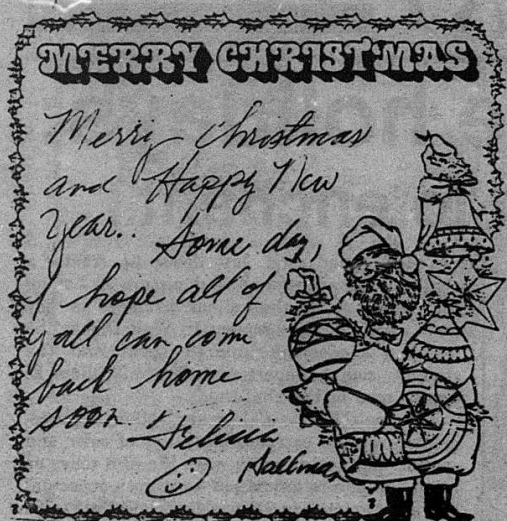 MERRY CHRISTMAS
Merry Christmas
and Happy New
Year.. Some day,
I hope all of
yall can come
back home
soon.
Felicia